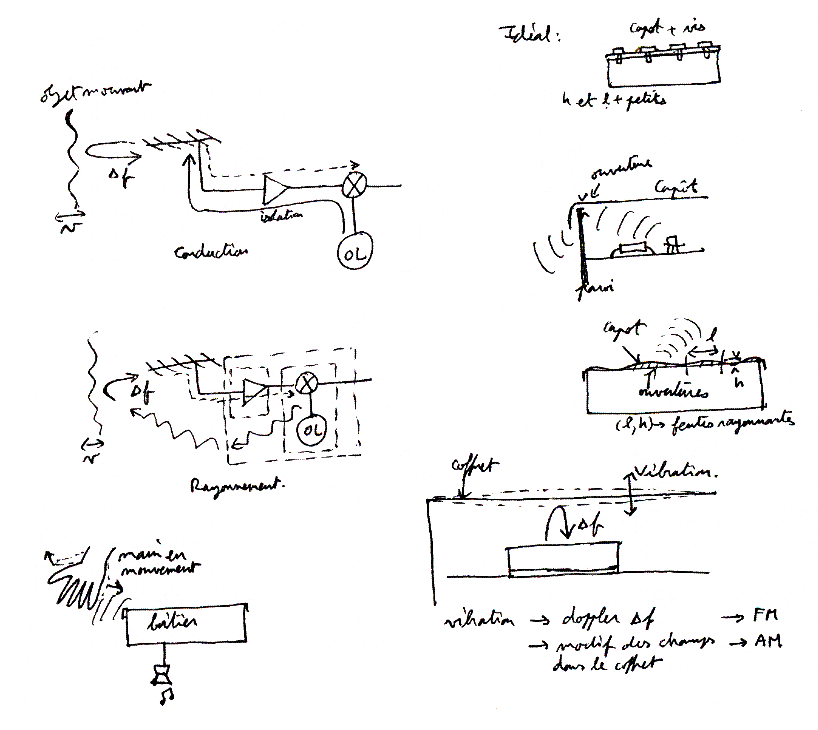 Idéal:
capot + vis
h et l + petits
objet mouvant
Δf
v
isolation
OL
Conduction
ouverture
Capôt
paroi
Δf
v
OL
Rayonnement.
capot
l
h
ouvertures
(l, h) → fentes rayonnantes
coffret
vibration.
Δf
main en
mouvement
boîtier
vibration → doppler Δf → FM
→ modif des champs → AM
dans le coffret